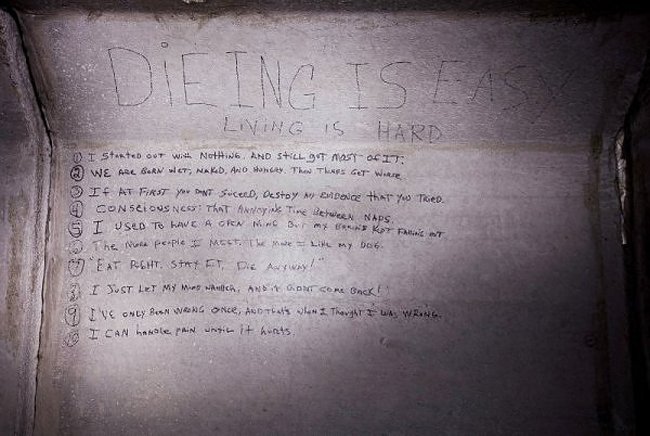 DiEING IS EASY
LIVING IS HARD
① I STARTED OUT WITH NOTHING. AND STILL GOT MOST OF IT:
② WE ARE BORN WET, NAKED, AND HUNGRY. THEN THINGS GET WORSE.
③ IF AT FIRST YOU DONT SUCEED, DESTOY ANY EVIDENCE THAT YOU TRIED.
④ CONSCIOUSNESS: THAT ANNOYING TIME BETWEEN NAPS.
⑤ I USED TO HAVE A OPEN MIND BUT MY BRAINS KEPT FALLING OUT
⑥ The More people I MEET. The More I Like MY DOG.
⑦ "EAT RIGHT. STAY FIT. DIE ANYWAY!"
⑧ I JUST LET MY MIND WANDER, AND it DIDNT COME BACK!
⑨ I'VE ONLY BEEN WRONG ONCE, AND that's when I Thought I WAS WRONG.
⑩ I CAN handle PAIN UNTIL it hurts.